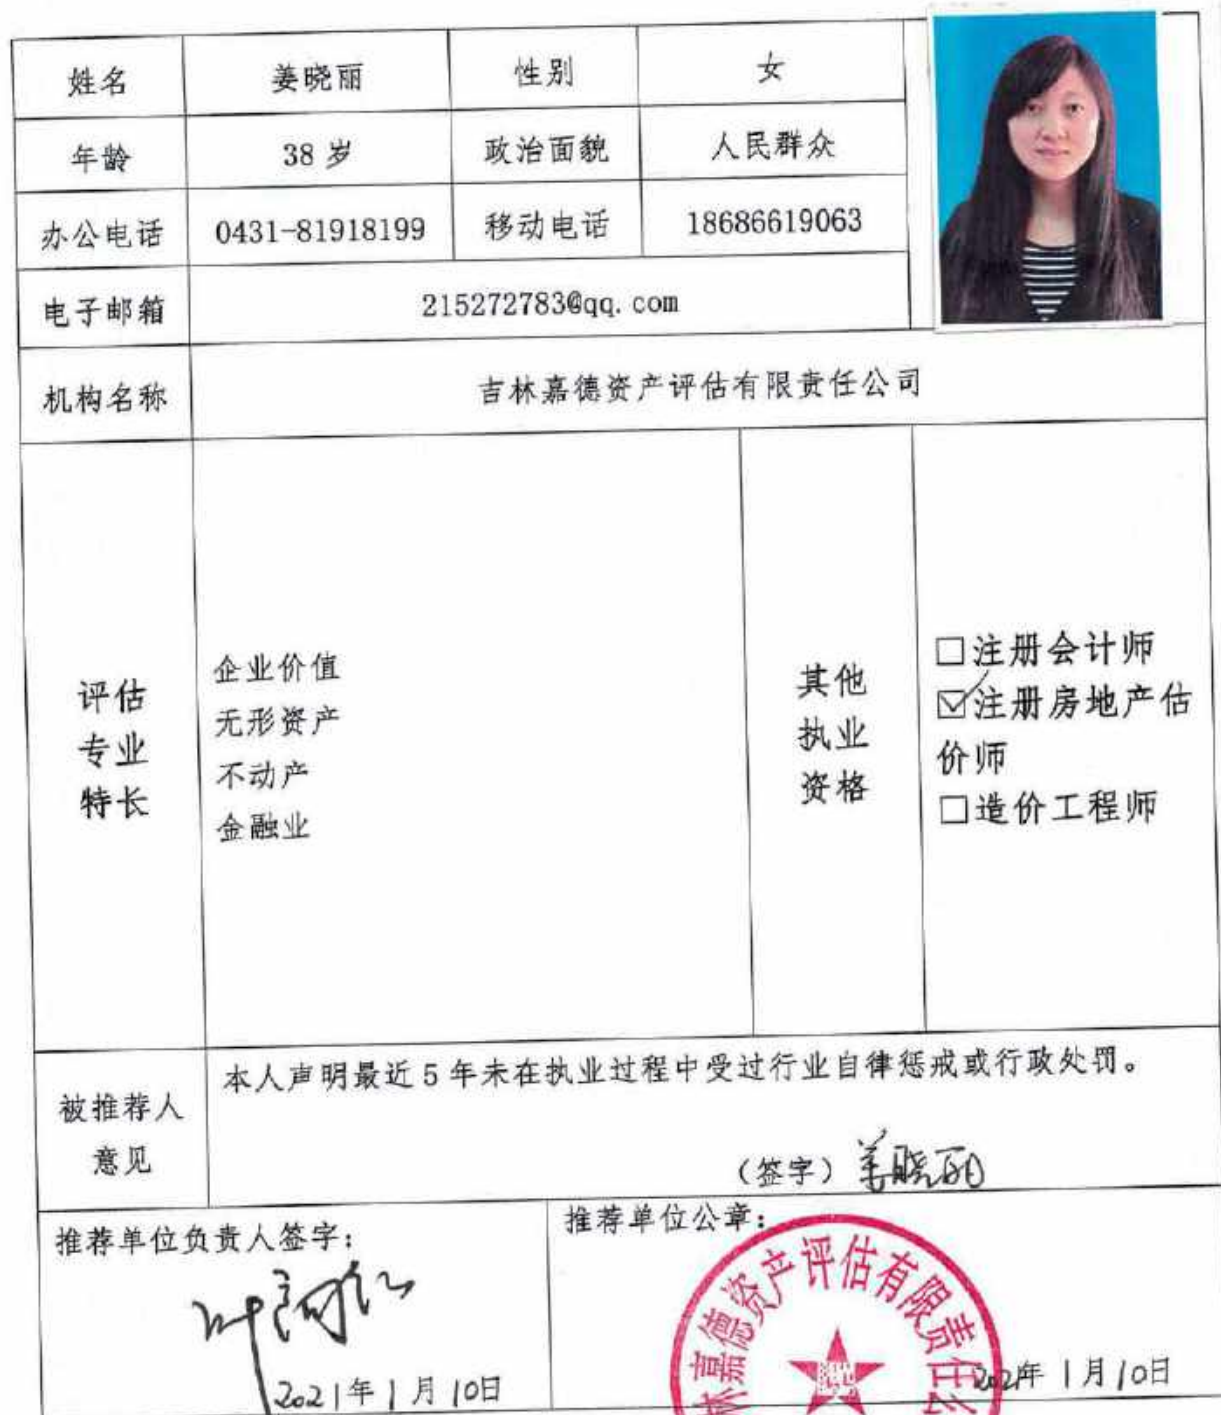 姓名 姜晓丽 性别 女
年龄 38 岁 政治面貌 人民群众
办公电话 0431-81918199 移动电话 18686619063
电子邮箱 215272783@qq.com
机构名称 吉林嘉德资产评估有限责任公司
评估
专业
特长
企业价值
无形资产
不动产
金融业
其他
执业
资格
□注册会计师
☑注册房地产估
价师
□造价工程师
被推荐人
意见
本人声明最近 5 年未在执业过程中受过行业自律惩戒或行政处罚。
（签字）姜晓丽
推荐单位负责人签字：
2021年1月10日
推荐单位公章：
林嘉德资产评估有限责任公
2021年1月10日